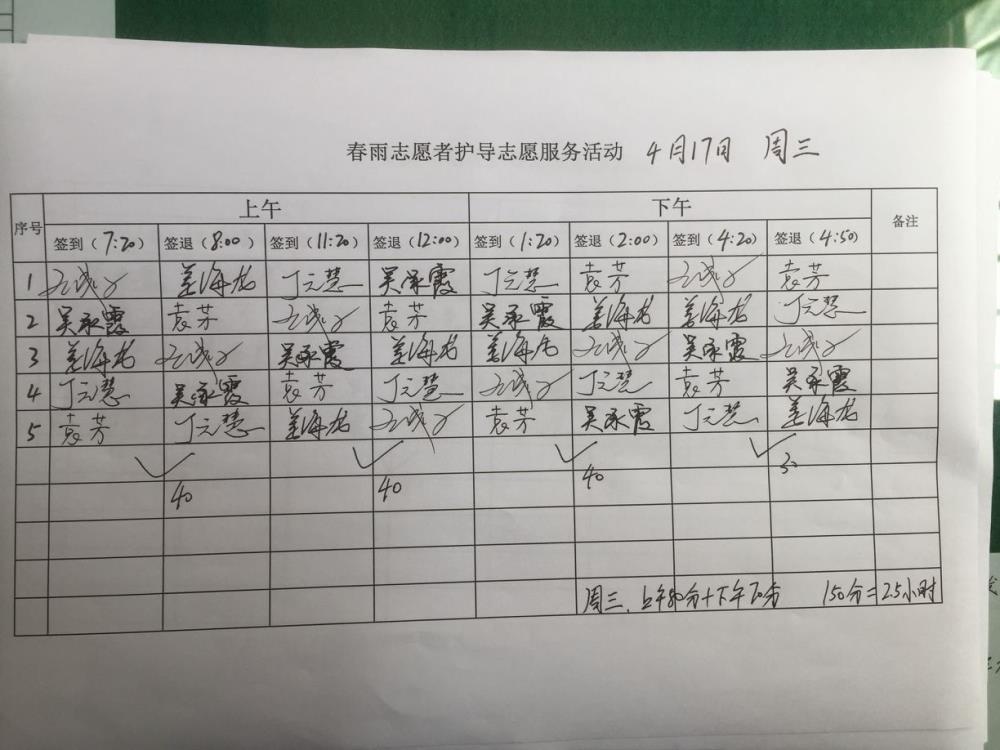 春雨志愿者护导志愿服务活动 4月17日 周三
序号 上午 下午 备注
签到（7:20） 签退（8:00） 签到（11:20） 签退（12:00） 签到（1:20） 签退（2:00） 签到（4:20） 签退（4:50）
1 姜海龙 丁元慧 吴承霞 丁元慧 袁芳 袁芳
2 吴承霞 袁芳 袁芳 吴承霞 姜海龙 姜海龙 丁元慧
3 姜海龙 吴承霞 姜海龙 姜海龙 吴承霞
4 丁元慧 吴承霞 袁芳 丁元慧 丁元慧 袁芳 吴承霞
5 袁芳 丁元慧 姜海龙 袁芳 吴承霞 丁元慧 姜海龙
40 40 40 30
周三，上午80分+下午70分 150分=2.5小时